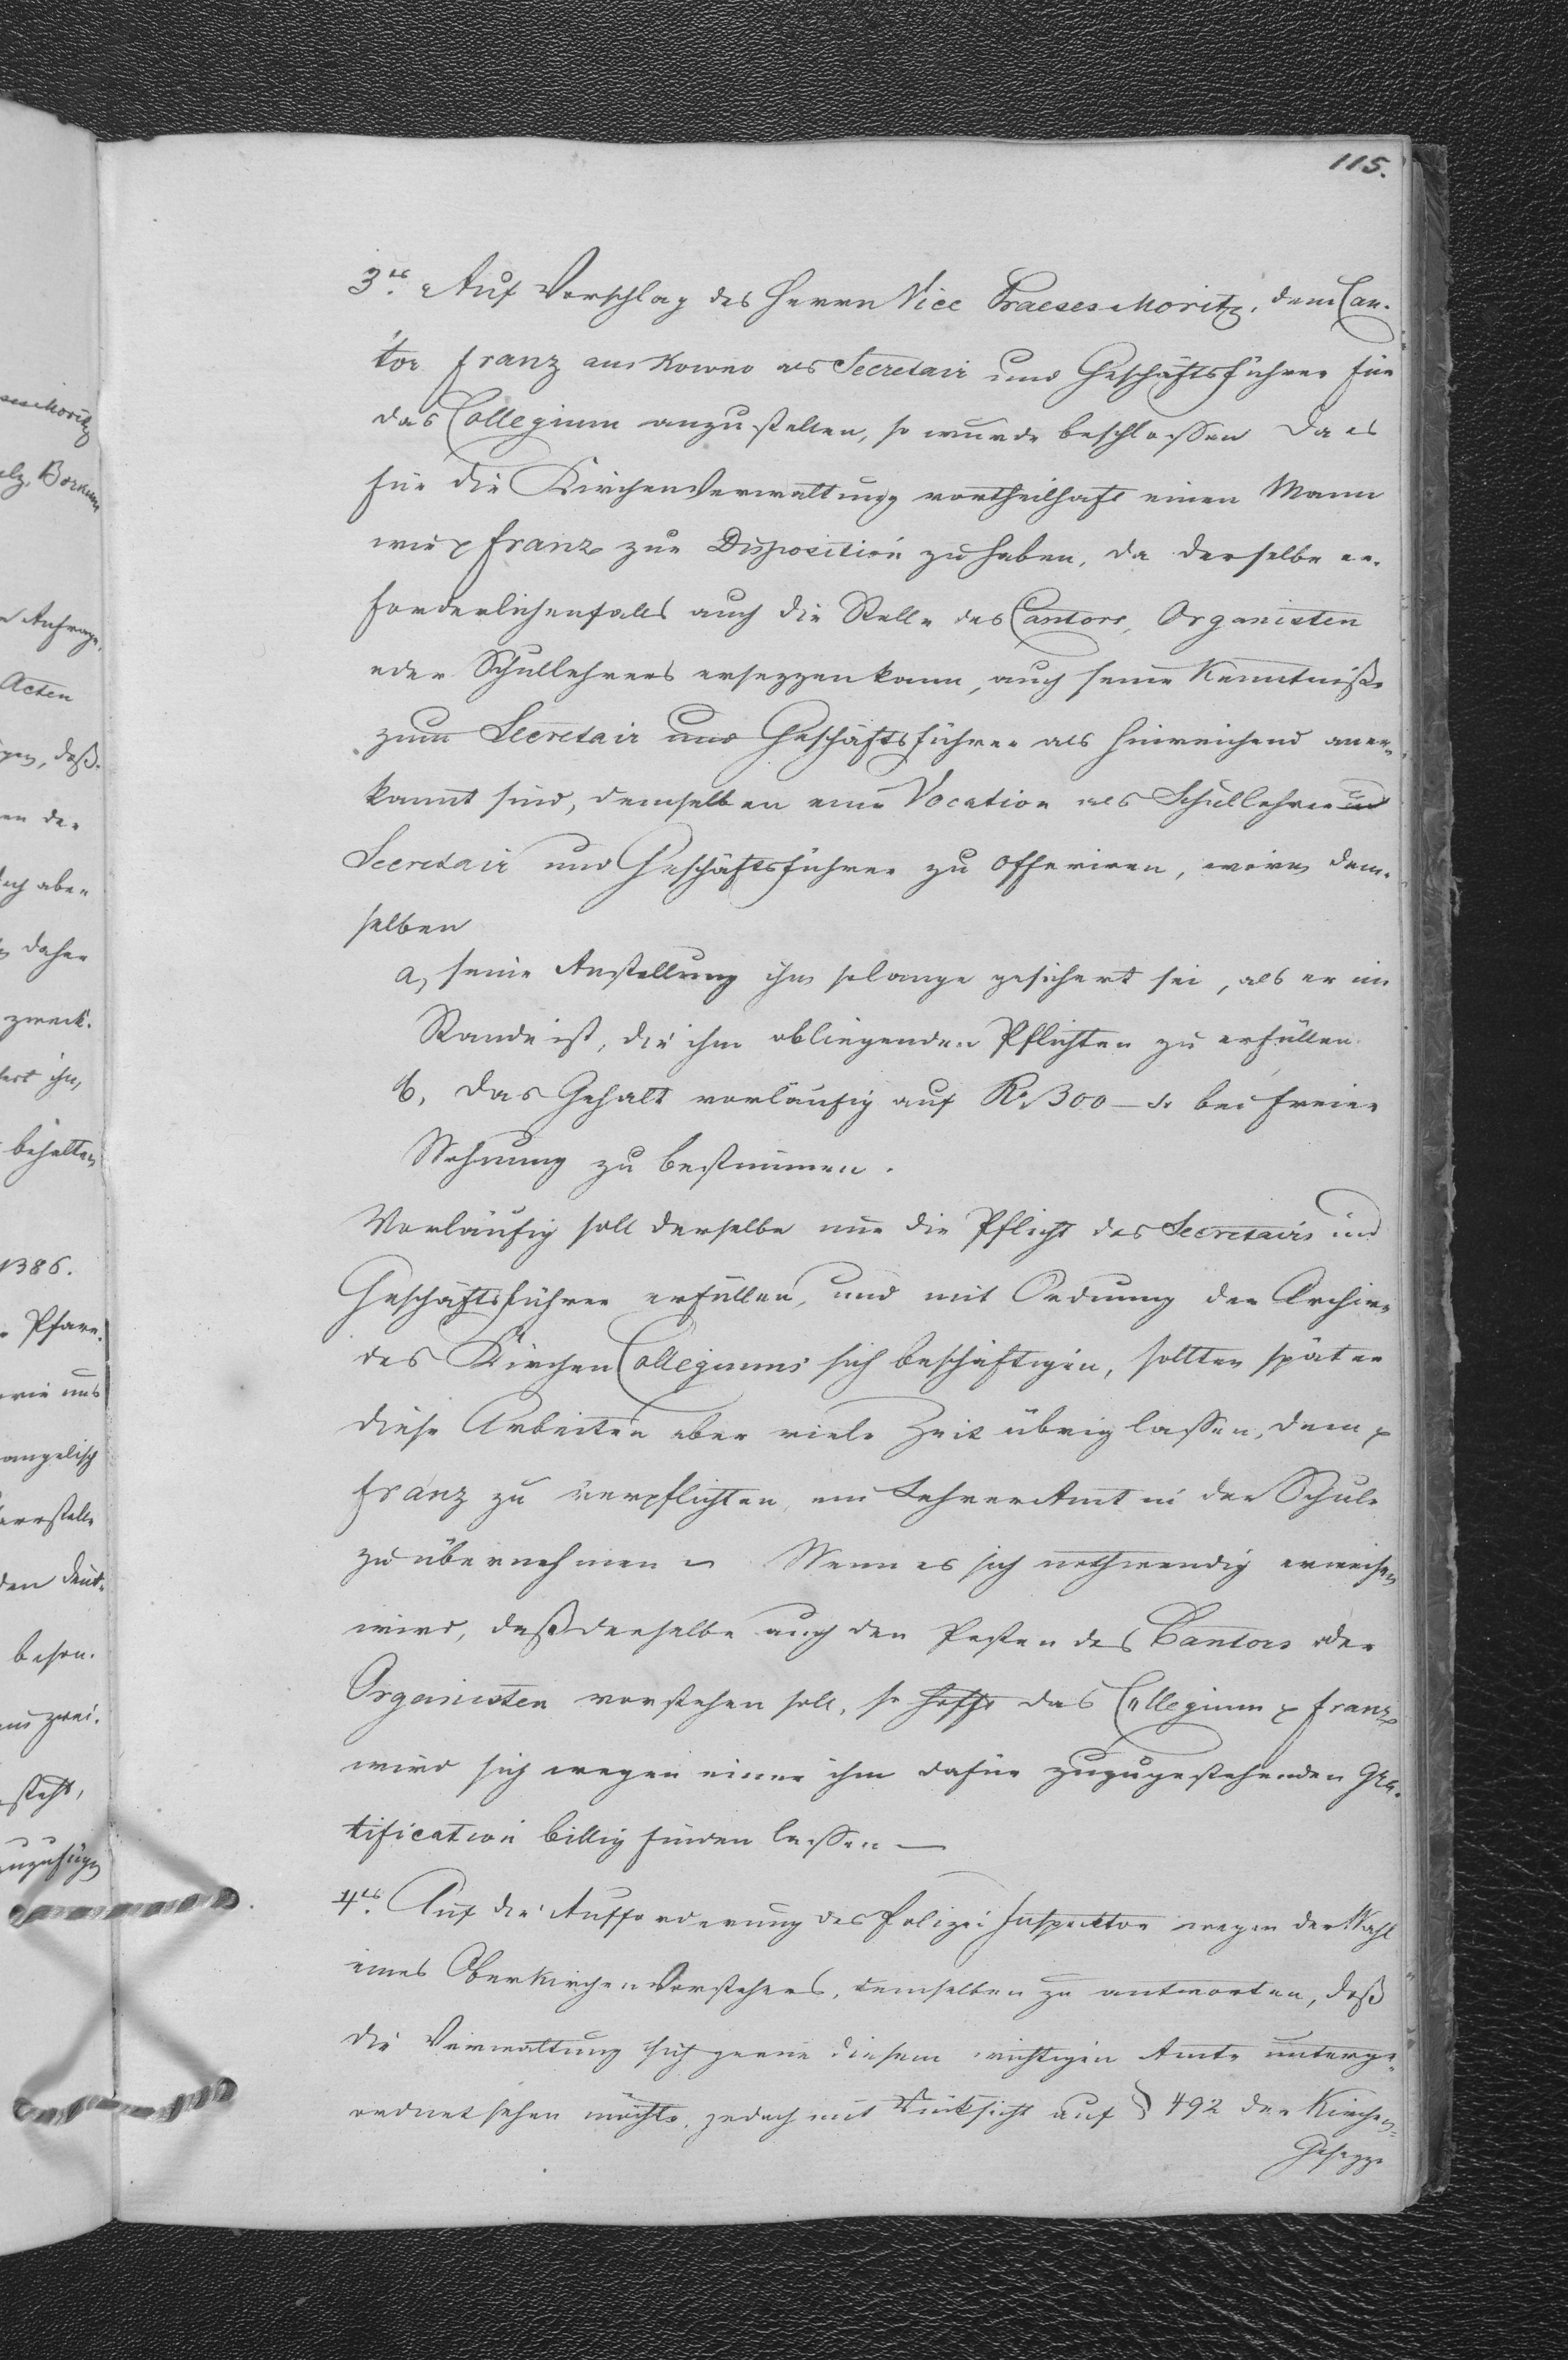 115.
3es. Auf Vorschlag des Herrn Vice Praeses Moritz, dem Can-
tor Franz aus Kowno als Secretair und Geschäftsführer für
das Collegium anzustellen, so wurde beschlossen da es
für die Kirchenverwaltung vortheilhaft einen Mann
wie p Franz zur Disposition zu haben, da derselbe er-
forderlichenfalls auch die Stelle des Cantors, Organisten
oder Schullehrers ersezzen kann, auch seine Kenntniße
zum Secretair und Geschäftsführer als hinreichend aner-
kannt sind, demselben eine Vocation als Schullehrer
Secretair und Geschäftsführer zu offeriren, worin dem-
selben
a, seine Anstellung ihm solange gesichert sei, als er im
Stande ist, die ihm obliegenden Pflichten zu erfüllen.
b, das Gehalt vorläufig auf R. 300 – S. bei freier
Wohnung zu bestimmen.
Vorläufig soll derselbe nur die Pflicht des Secretairs und
Geschäftsführer erfüllen, und mit Ordnung der Archive
des Kirchen Collegiums sich beschäftigen, sollten später
diese Arbeiten aber viele Zeit übrig lassen, dem p
Franz zu verpflichten, ein Lehrer Amt in der Schule
zu übernehmen. Wenn es sich nothwendig erweisen
wird, daß derselbe auch den Posten des Cantors oder
Organisten vorstehen soll, so hofft das Collegium p Franz
wird sich wegen einer ihm dafür zuzugestehenden Gra-
tification billig finden lassen —
4es. Auf die Aufforderung des Polizei Inspektor wegen der Wahl
eines Oberkirchenvorstehers, demselben zu antworten, daß
die Verwaltung sich gerne diesem wichtigen Amte unterge-
ordnet sehen möchte, jedoch mit Rücksicht auf § 492 der Kirchen-
Gesezze
sesMoritz
Borkum
Anfrage,
Acten
daß
daher
zweck-
behalten
1386.
Pfarr-
angelisch
beson-
zwei-
steht,